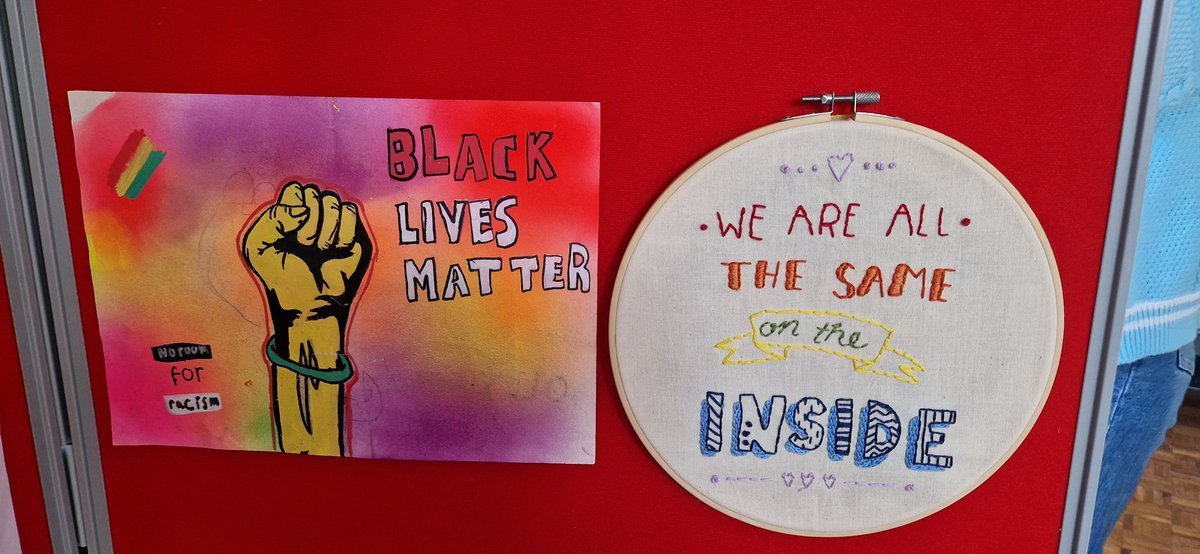 BLACK
LIVES
MATTER
NO ROOM
FOR
racism
• WE ARE ALL •
THE SAME
on the
INSIDE